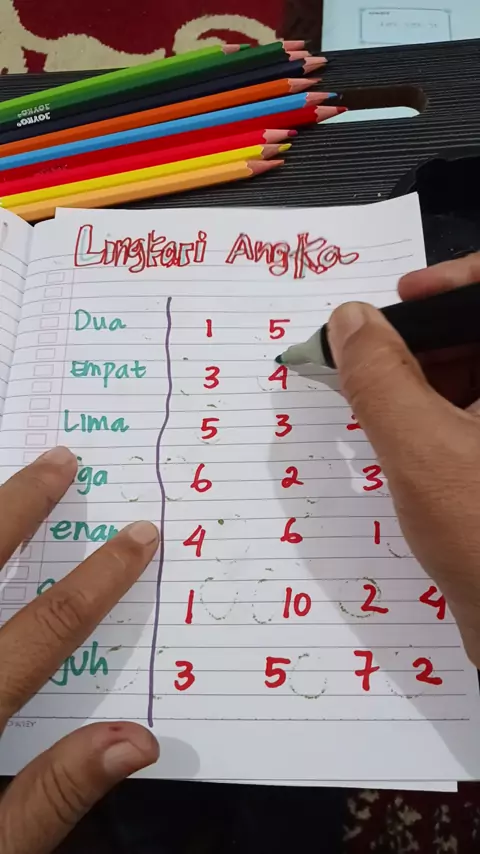 JOYKO
JOYKO
Lingkari Angka
Dua 1 5
Empat 3 4
Lima 5 3
iga 6 2 3
enam 4 6 1
1 10 2 4
juh 3 5 7 2